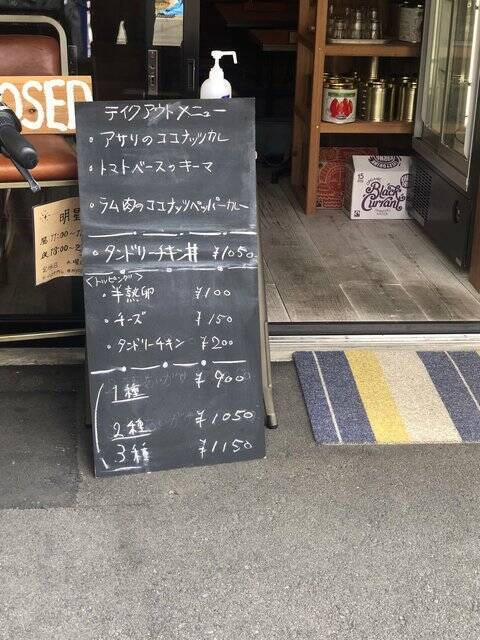 テイクアウトメニュー
・アサリのココナッツカレー
・トマトベースのキーマ
・ラム肉のココナッツペッパーカレー
・タンドリーチキン丼 ¥1050
<トッピング>
・半熟卵 ¥100
・チーズ ¥150
・タンドリーチキン ¥200
1種 ¥900
2種 ¥1050
3種 ¥1150
OSED
明星
昼11:00~
夜18:00~2
定休日 水曜
15
ORGANIC
Black
Currant